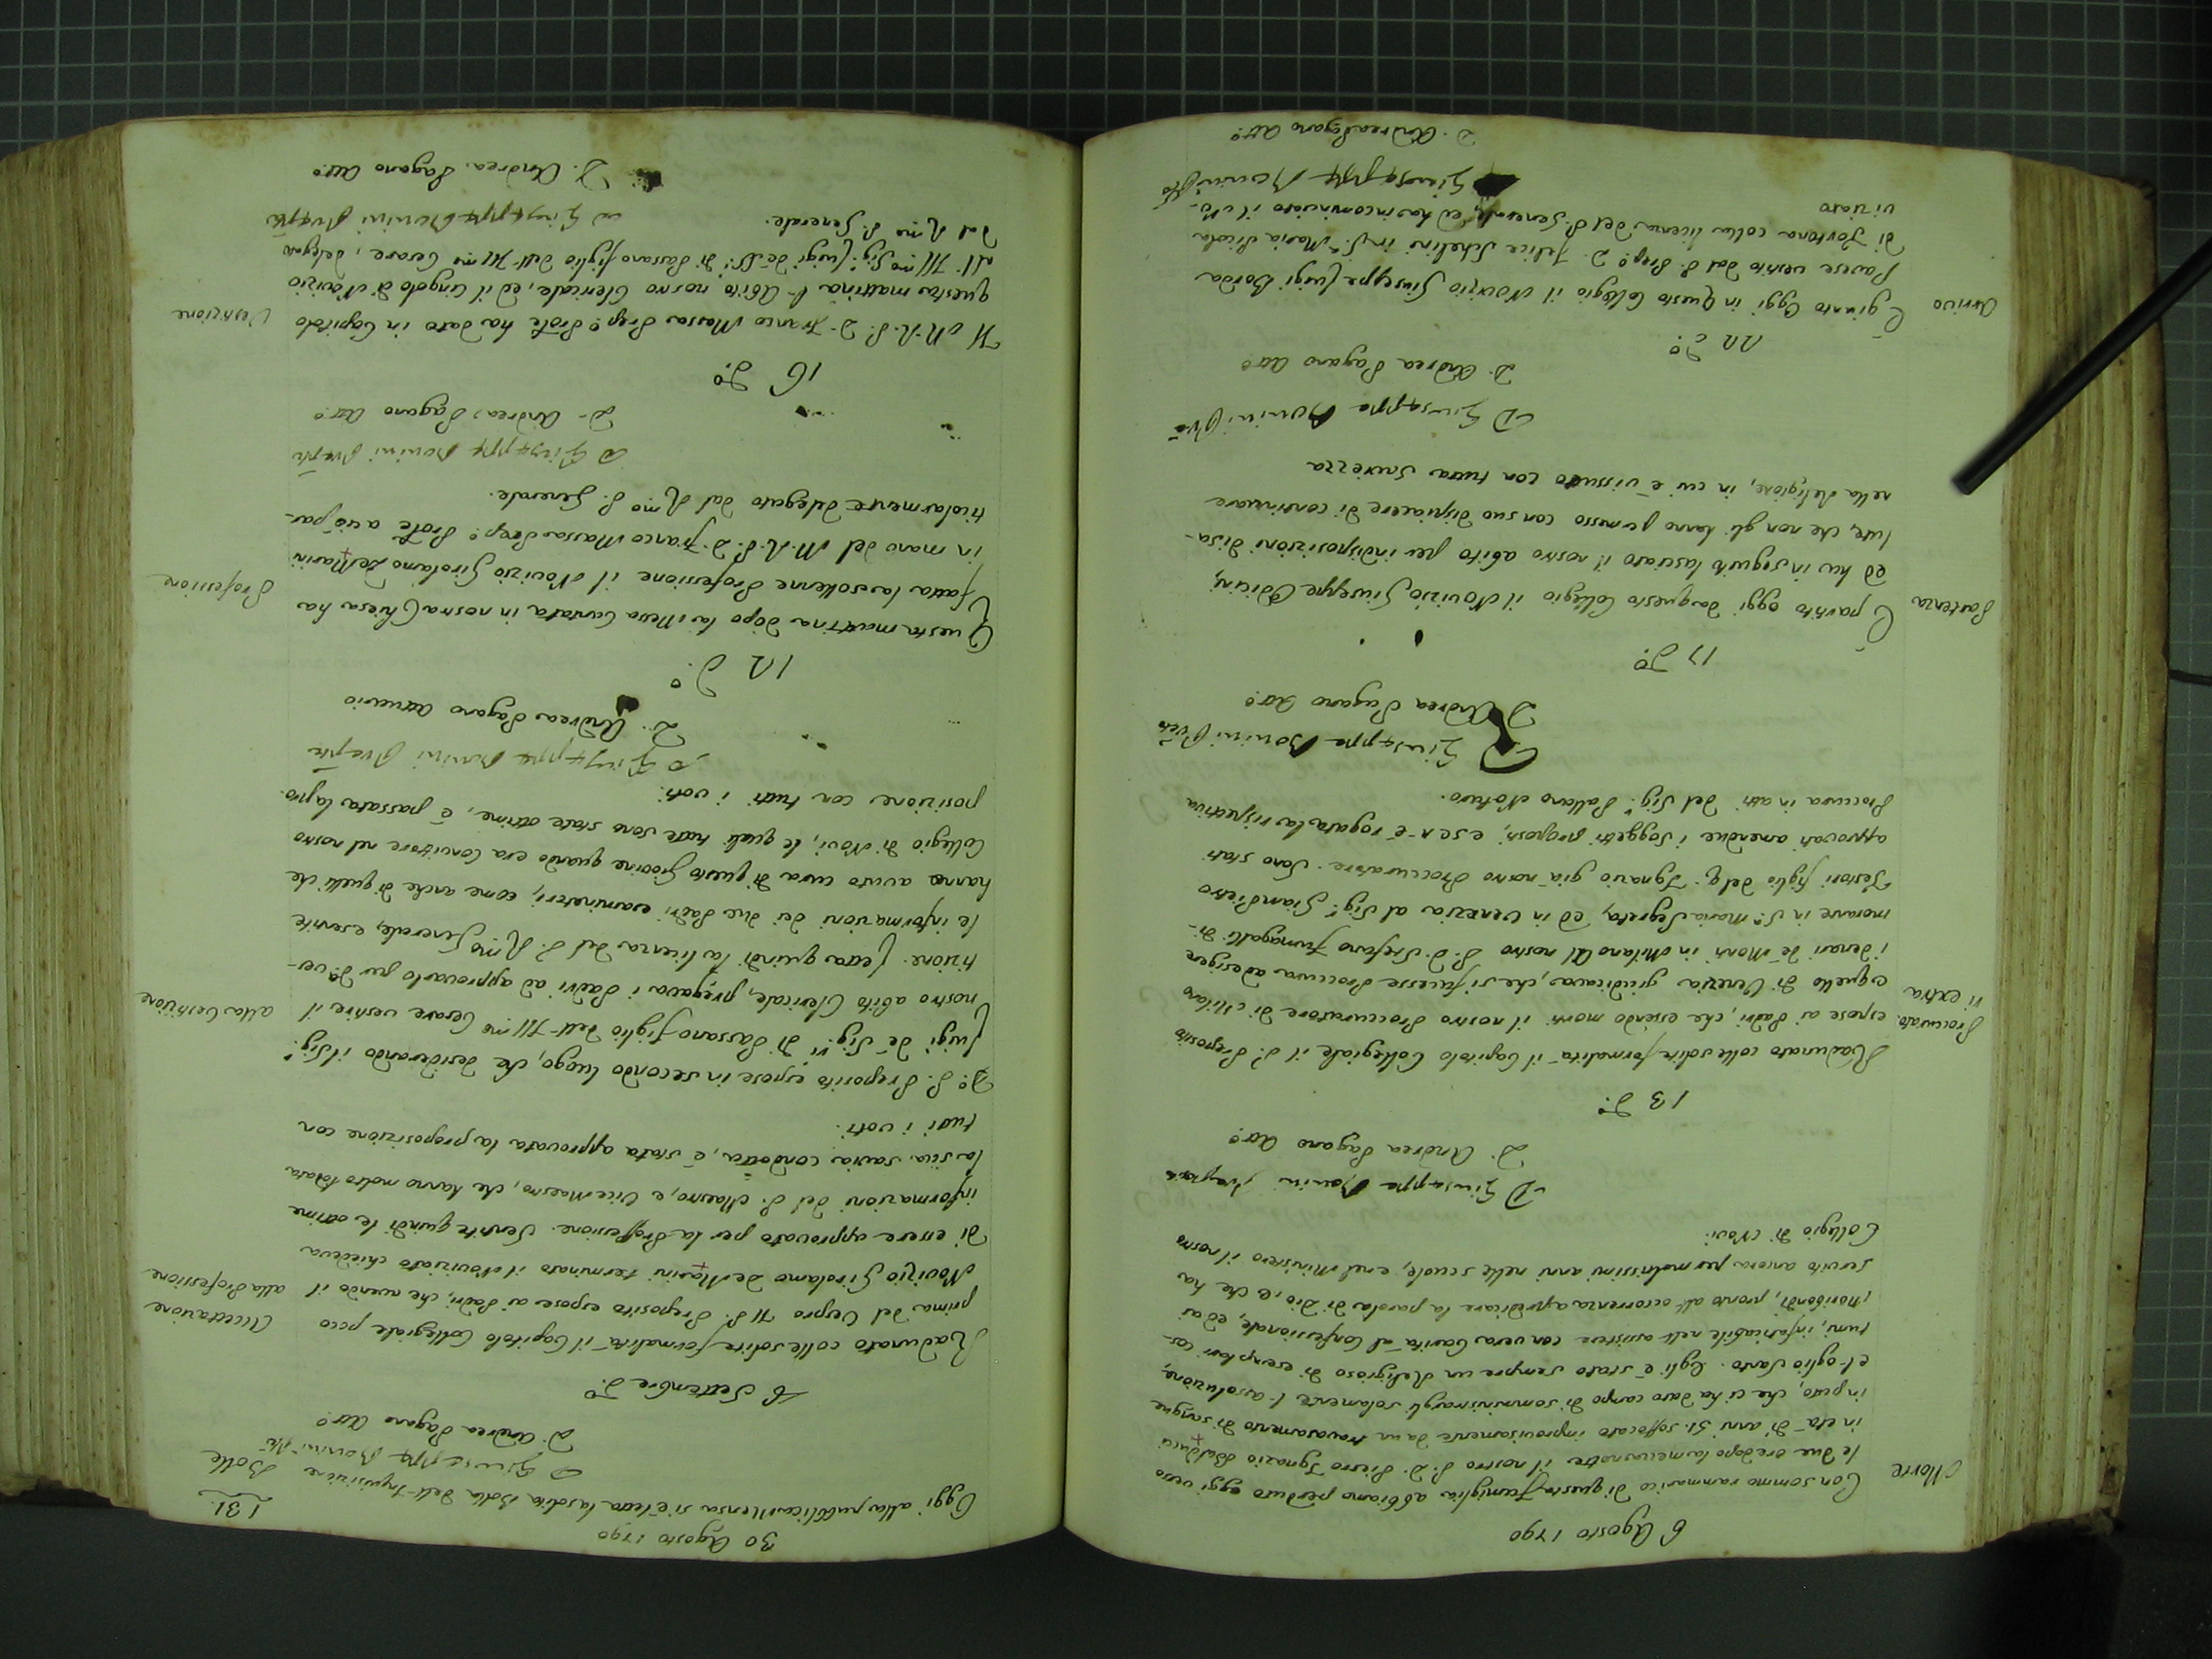 6 Agosto 1790
Morte
Con sommo rammarico di questa famiglia abbiamo perduto oggi verso
le due ore dopo la mezzanotte il nostro P. D. Pietro Ignazio Balduci
in età d'anni 51. soffocato improvisamente da un travasamento di sangue
in petto, che ci ha dato campo di somministrargli solamente l'assoluzione,
e l'oglio Santo. Egli è stato sempre un Religioso di esemplari cos-
tumi, infaticabile nell'assistere con vera Carità al Confessionale, ed ai
moribondi, pronto all'occorrenza a predicare la parola di Dio, e che ha
servito ancora per moltissimi anni nelle scuole, e nel Ministero il nostro
Collegio di Novi.
D Giuseppe Bonini Preposito
D. Andrea Pagano Att.o
13 d.o
Procurato-
ri extra
Radunato colle solite formalità il Capitolo Collegiale il P. Preposito
espose ai Padri, che essendo morti il nostro Proccuratore di Milano
e quello di Venezia giudicava, che si facesse Proccura ad esigere
i denari de' Monti in Milano al nostro P. D. Stefano Fumagalli di-
morante in S.a Maria Segreta, ed in Venezia al Sig.r Giam Pietro
Testori figlio del q. Ignazio già nostro Proccuratore. Sono stati
approvati amendue i soggetti proposti, e se n'è rogata la rispettiva
Proccura in atti del Sig.r Pallano Notaro.
D Giuseppe Bonini
D Andrea Pagano Att.o
17 d.o
Partenza
È partito oggi da questo Collegio il Novizio Giuseppe
ed ha in seguito lasciato il nostro abito per indisposizioni di sa-
lute, che non gli hanno permesso con suo dispiacere di continuare
nella Religione, in cui è vissuto con tutta saviezza
D Giuseppe Bonini
D. Andrea Pagano Att.o
22 d.o
Arrivo
È giunto Oggi in questo Collegio il Novizio Giuseppe Luigi Borda
Pavese vestito dal P. Prep.o D. Felice Schelini in S.a Maria Picola
di Tortona colla licenza del P. Generale, ed ha incominciato il No-
viziato
Giuseppe Bonini
D. Andrea Pagano Att.o
30 Agosto 1790
131
Bolle
Oggi alla pubblica Mensa si è letta la solita Bolla dell'Inquisizione
D Giuseppe Bonini
D. Andrea Pagano Att.o
6 Settembre d.o
Accettazione
alla Professione
Radunato colle solite formalità il Capitolo Collegiale poco
prima del Vespro Il P. Preposito espose ai Padri, che avendo il
Novizio Girolamo De Marini terminato il Noviziato chiedeva
di essere approvato per la Professione. Sentite quindi le ottime
informazioni del P. Maestro, e Vice Maestro, che hanno molto lodata
la sua savia condotta, è stata approvata la proposizione con
tutti i voti.
alla Vestizione
D.o P. Preposito espose in secondo luogo, che desiderando il Sig.r
Luigi de' Sig.ri di Passano figlio dell'Ill.mo Cesare vestire il
nostro abito Clericale, pregava i Padri ad approvarlo per d.a ves-
tizione. Letta quindi la licenza del P. R.mo Generale, e sentite
le informazioni dei due Padri esaminatori, come anche di quelli che
hanno avuto cura di questo Giovine quando era Convittore nel nostro
Collegio di Novi, le quali tutte sono state ottime, è passata la pro-
posizione con tutti i voti.
D Giuseppe Bonini
D. Andrea Pagano Attuario
12 d.o
Professione
Questa mattina dopo la Messa Cantata in nostra Chiesa ha
fatta la sollenne Professione il Novizio Girolamo De Marini
in mano del M. R. P. D. Franco Massa Prep.o Prõle a ciò par-
ticolarmente delegato dal R.mo P. Generale.
D Giuseppe Bonini
D. Andrea Pagano Att.o
16 d.o
Vestizione
Il M. R. P. D. Franco Massa Prep.o Prõle ha dato in Capitolo
questa mattina l'Abito nostro Clericale, ed il Cingolo di Novizio
all'Ill.mo Sig.r Luigi de SS.ri di Passano figlio dell'Ill.mo Cesare, delegato
dal R.mo P. Generale.
D Giuseppe Bonini
D. Andrea Pagano Att.o